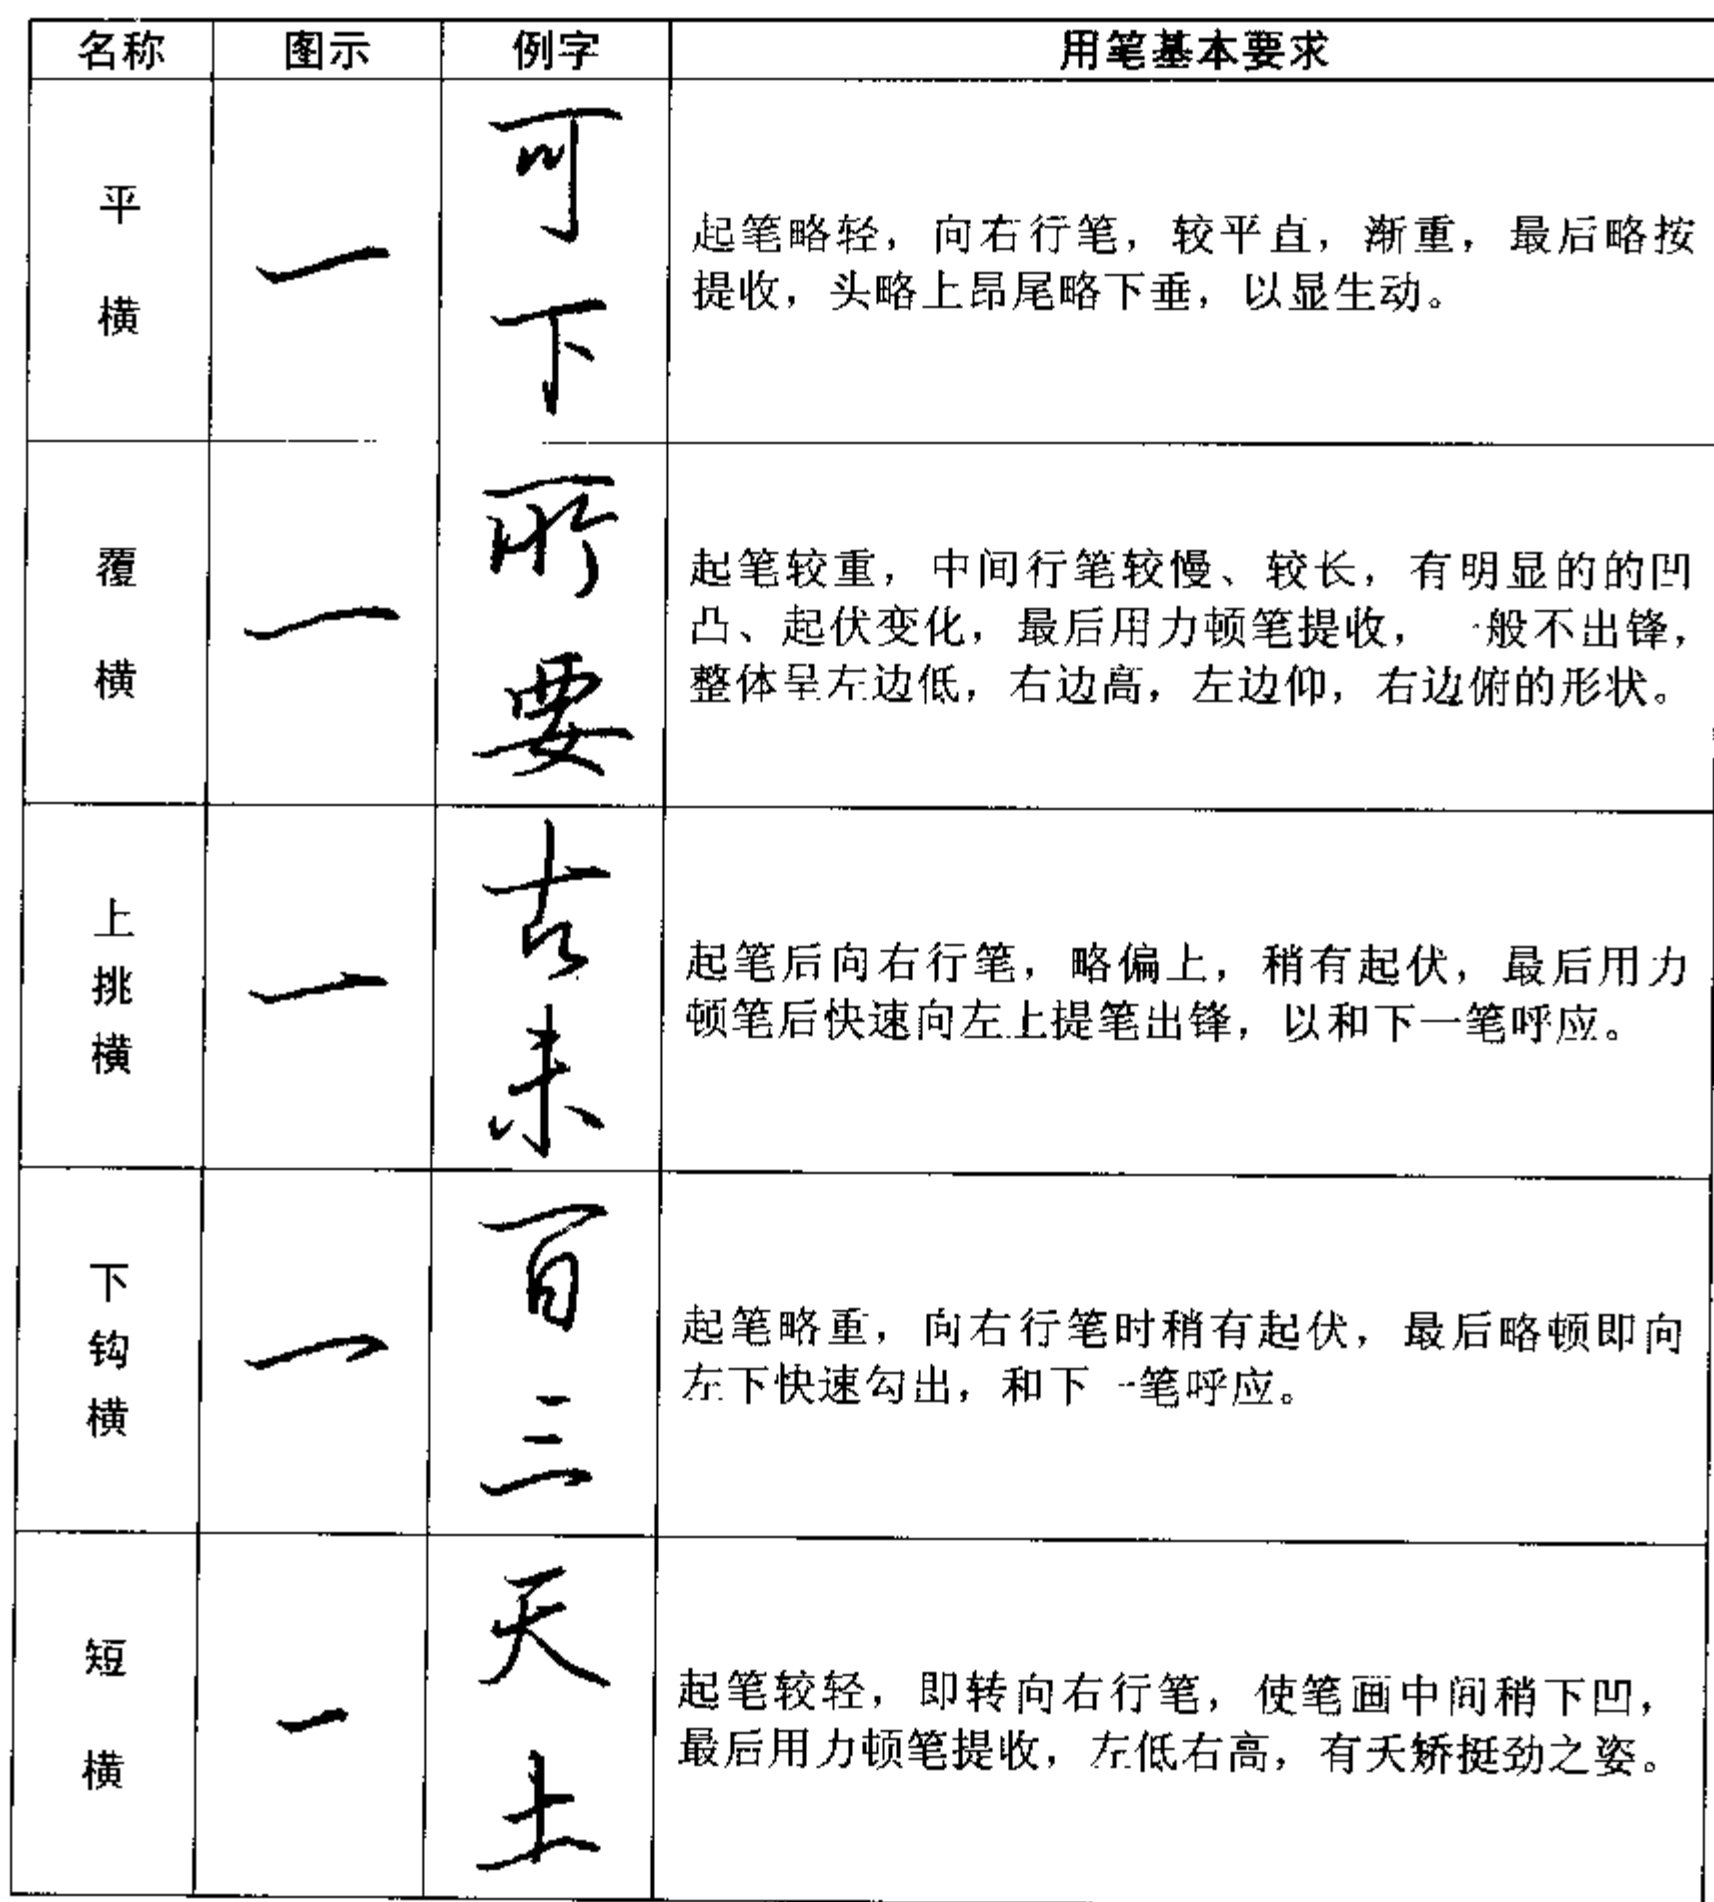 名称 图示 例字 用笔基本要求
平横 一 可下 起笔略轻，向右行笔，较平直，渐重，最后略按
提收，头略上昂尾略下垂，以显生动。
覆横 一 所要 起笔较重，中间行笔较慢、较长，有明显的的凹
凸、起伏变化，最后用力顿笔提收，一般不出锋，
整体呈左边低，右边高，左边仰，右边俯的形状。
上挑横 一 古未 起笔后向右行笔，略偏上，稍有起伏，最后用力
顿笔后快速向左上提笔出锋，以和下一笔呼应。
下钩横 一 百三 起笔略重，向右行笔时稍有起伏，最后略顿即向
左下快速勾出，和下一笔呼应。
短横 一 天土 起笔较轻，即转向右行笔，使笔画中间稍下凹，
最后用力顿笔提收，左低右高，有夭矫挺劲之姿。